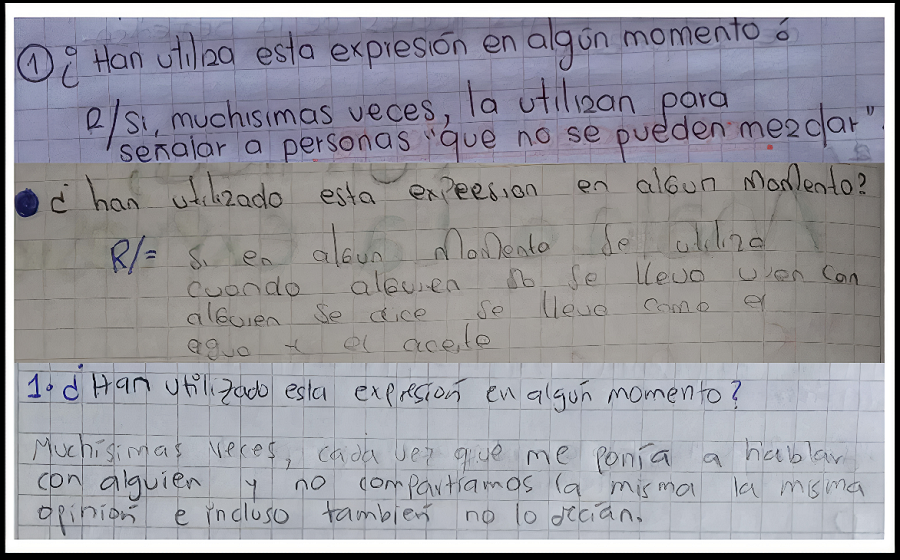 ① ¿Han utiliza esta expresión en algún momento ó
R/Si, muchisimas veces, la utilizan para
señalar a personas "que no se pueden mezclar"
¿ han utilizado esta expresion en algun Momento?
R/= Si en algun Momento Se utiliza
cuando alguien no Se lleva vien Con
alguien Se dice Se lleva como el
agua y el aceite
1. ¿Han utilizado esta expresión en algún momento?
Muchísimas veces, cada vez que me ponía a hablar
con alguien y no compartíamos la misma la misma
opinión e incluso también no lo decían.